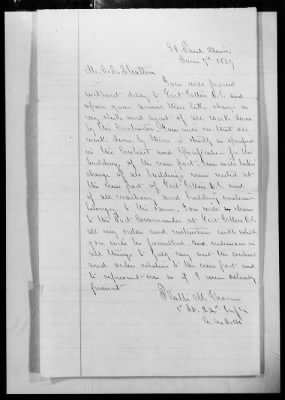 St. Paul Minn.
June 7th 1867
Mr. J. B. Stratton
You will proceed
without delay to Fort Totten D.T. and
upon your arrival there take charge as
my clerk and agent of all work done
by the Contractor. You will see that all
work done by them is strictly as specified
in the Contract and Specifications for the
building of the new post. You will take
charge of all buildings now erected at
the new post of Fort Totten D.T. and
of all machinery and building material
belonging to the same. You will show
to the Post Commander at Fort Totten D.T.
all my orders and instructions with which
you will be furnished, and endeavor in
all things to fully carry out the contract
and orders relative to the new post and
to represent me as if I were actually
present
Platt M. Thorne
1st Lt. 22nd Infy